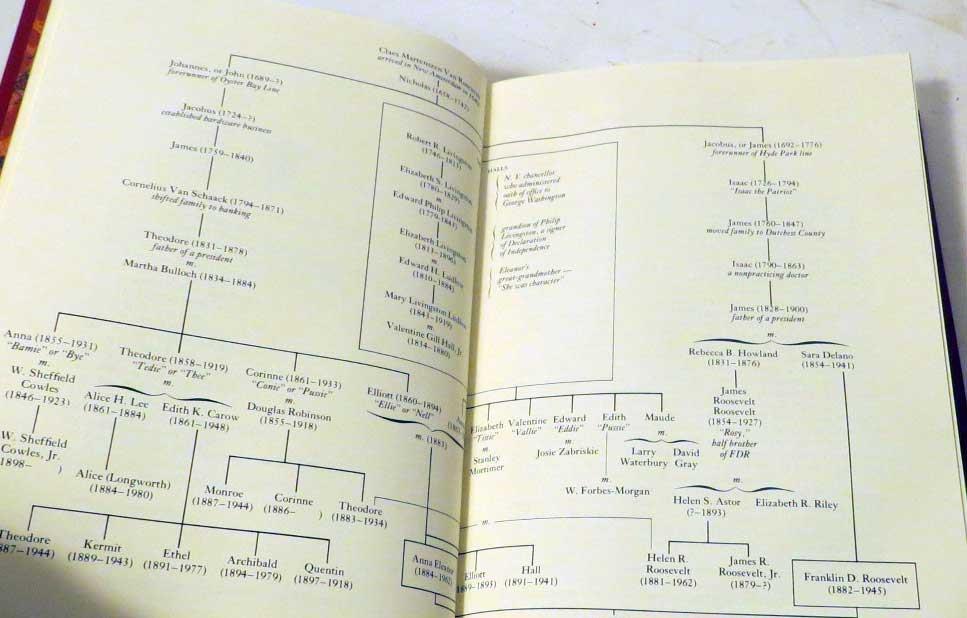 Claes Martenszen Van
arrived in New Amsterdam in
Nicholas (1658–1742)
Johannes, or John (1689–?)
forerunner of Oyster Bay Line
Jacobus (1724–?)
established hardware business
James (1759–1840)
Cornelius Van Schaack (1794–1871)
shifted family to banking
Theodore (1831–1878)
father of a president
m.
Martha Bulloch (1834–1884)
Robert R. Livingston
(1746–1813)
Elizabeth S. Livingston
(1780–1829)
m.
Edward Philip Livingston
(1779–1843)
Elizabeth Livingston
(1813–1896)
m.
Edward H. Ludlow
(1810–1884)
Mary Livingston Ludlow
(1843–1919)
m.
Valentine Gill Hall, Jr.
(1834–1880)
Anna (1855–1931)
"Bamie" or "Bye"
m.
W. Sheffield
Cowles
(1846–1923)
W. Sheffield
Cowles, Jr.
1898–      )
Theodore (1858–1919)
"Tedie" or "Thee"
m.
Alice H. Lee
(1861–1884)
Edith K. Carow
(1861–1948)
Alice (Longworth)
(1884–1980)
Corinne (1861–1933)
"Conie" or "Pussie"
m.
Douglas Robinson
(1855–1918)
Elliott (1860–1894)
"Ellie" or "Nell"
m. (1883)
Monroe
(1887–1944)
Corinne
(1886–      )
Theodore
(1883–1934)
Theodore
887–1944)
Kermit
(1889–1943)
Ethel
(1891–1977)
Archibald
(1894–1979)
Quentin
(1897–1918)
Anna Eleanor
(1884–1962)
HALLS
N. Y. chancellor
who administered
oath of office to
George Washington
grandson of Philip
Livingston, a signer
of Declaration
of Independence
Eleanor's
great-grandmother—
"She was character"
Jacobus, or James (1692–1776)
forerunner of Hyde Park line
Isaac (1726–1794)
"Isaac the Patriot"
James (1760–1847)
moved family to Dutchess County
Isaac (1790–1863)
a nonpracticing doctor
James (1828–1900)
father of a president
m.
Rebecca B. Howland
(1831–1876)
Sara Delano
(1854–1941)
Elizabeth
"Tissie"
m.
Stanley
Mortimer
Valentine
"Vallie"
Edward
"Eddie"
m.
Josie Zabriskie
Edith
"Pussie"
m.
W. Forbes-Morgan
Maude
m.
Larry
Waterbury
David
Gray
James
Roosevelt
Roosevelt
(1854–1927)
"Rosy,"
half brother
of FDR
m.
Helen S. Astor
(?–1893)
Elizabeth R. Riley
m.
Elliott
(1889–1893)
Hall
(1891–1941)
Helen R.
Roosevelt
(1881–1962)
James R.
Roosevelt, Jr.
(1879–?)
Franklin D. Roosevelt
(1882–1945)